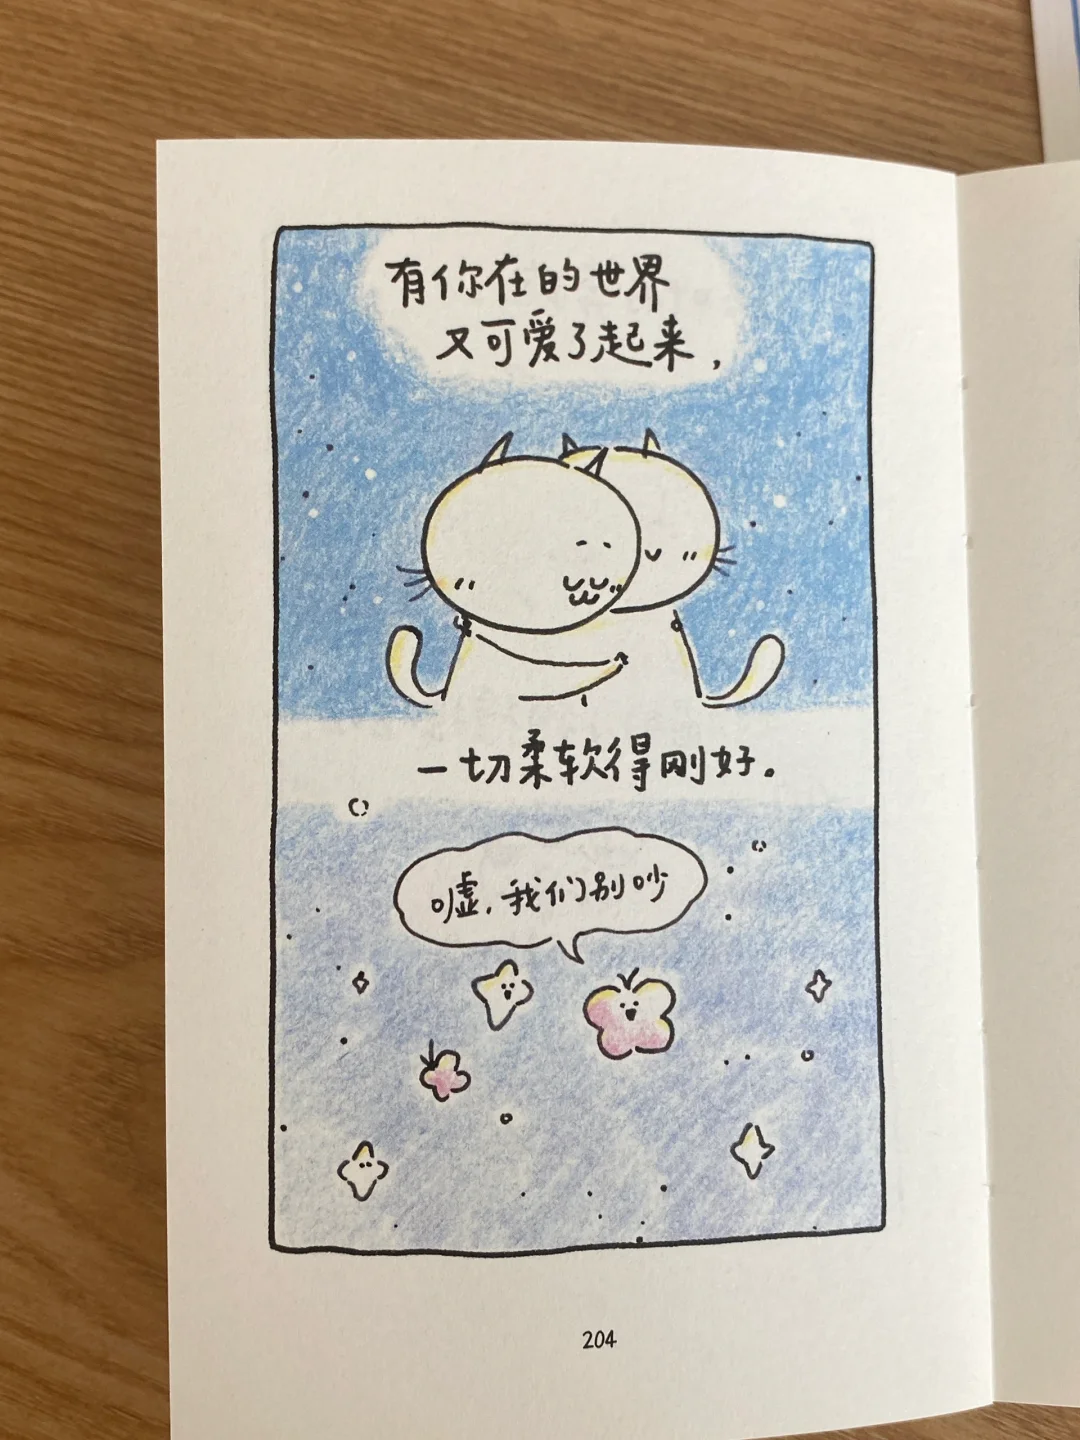 有你在的世界
又可爱了起来，
一切柔软得刚好.
嘘，我们别吵
204